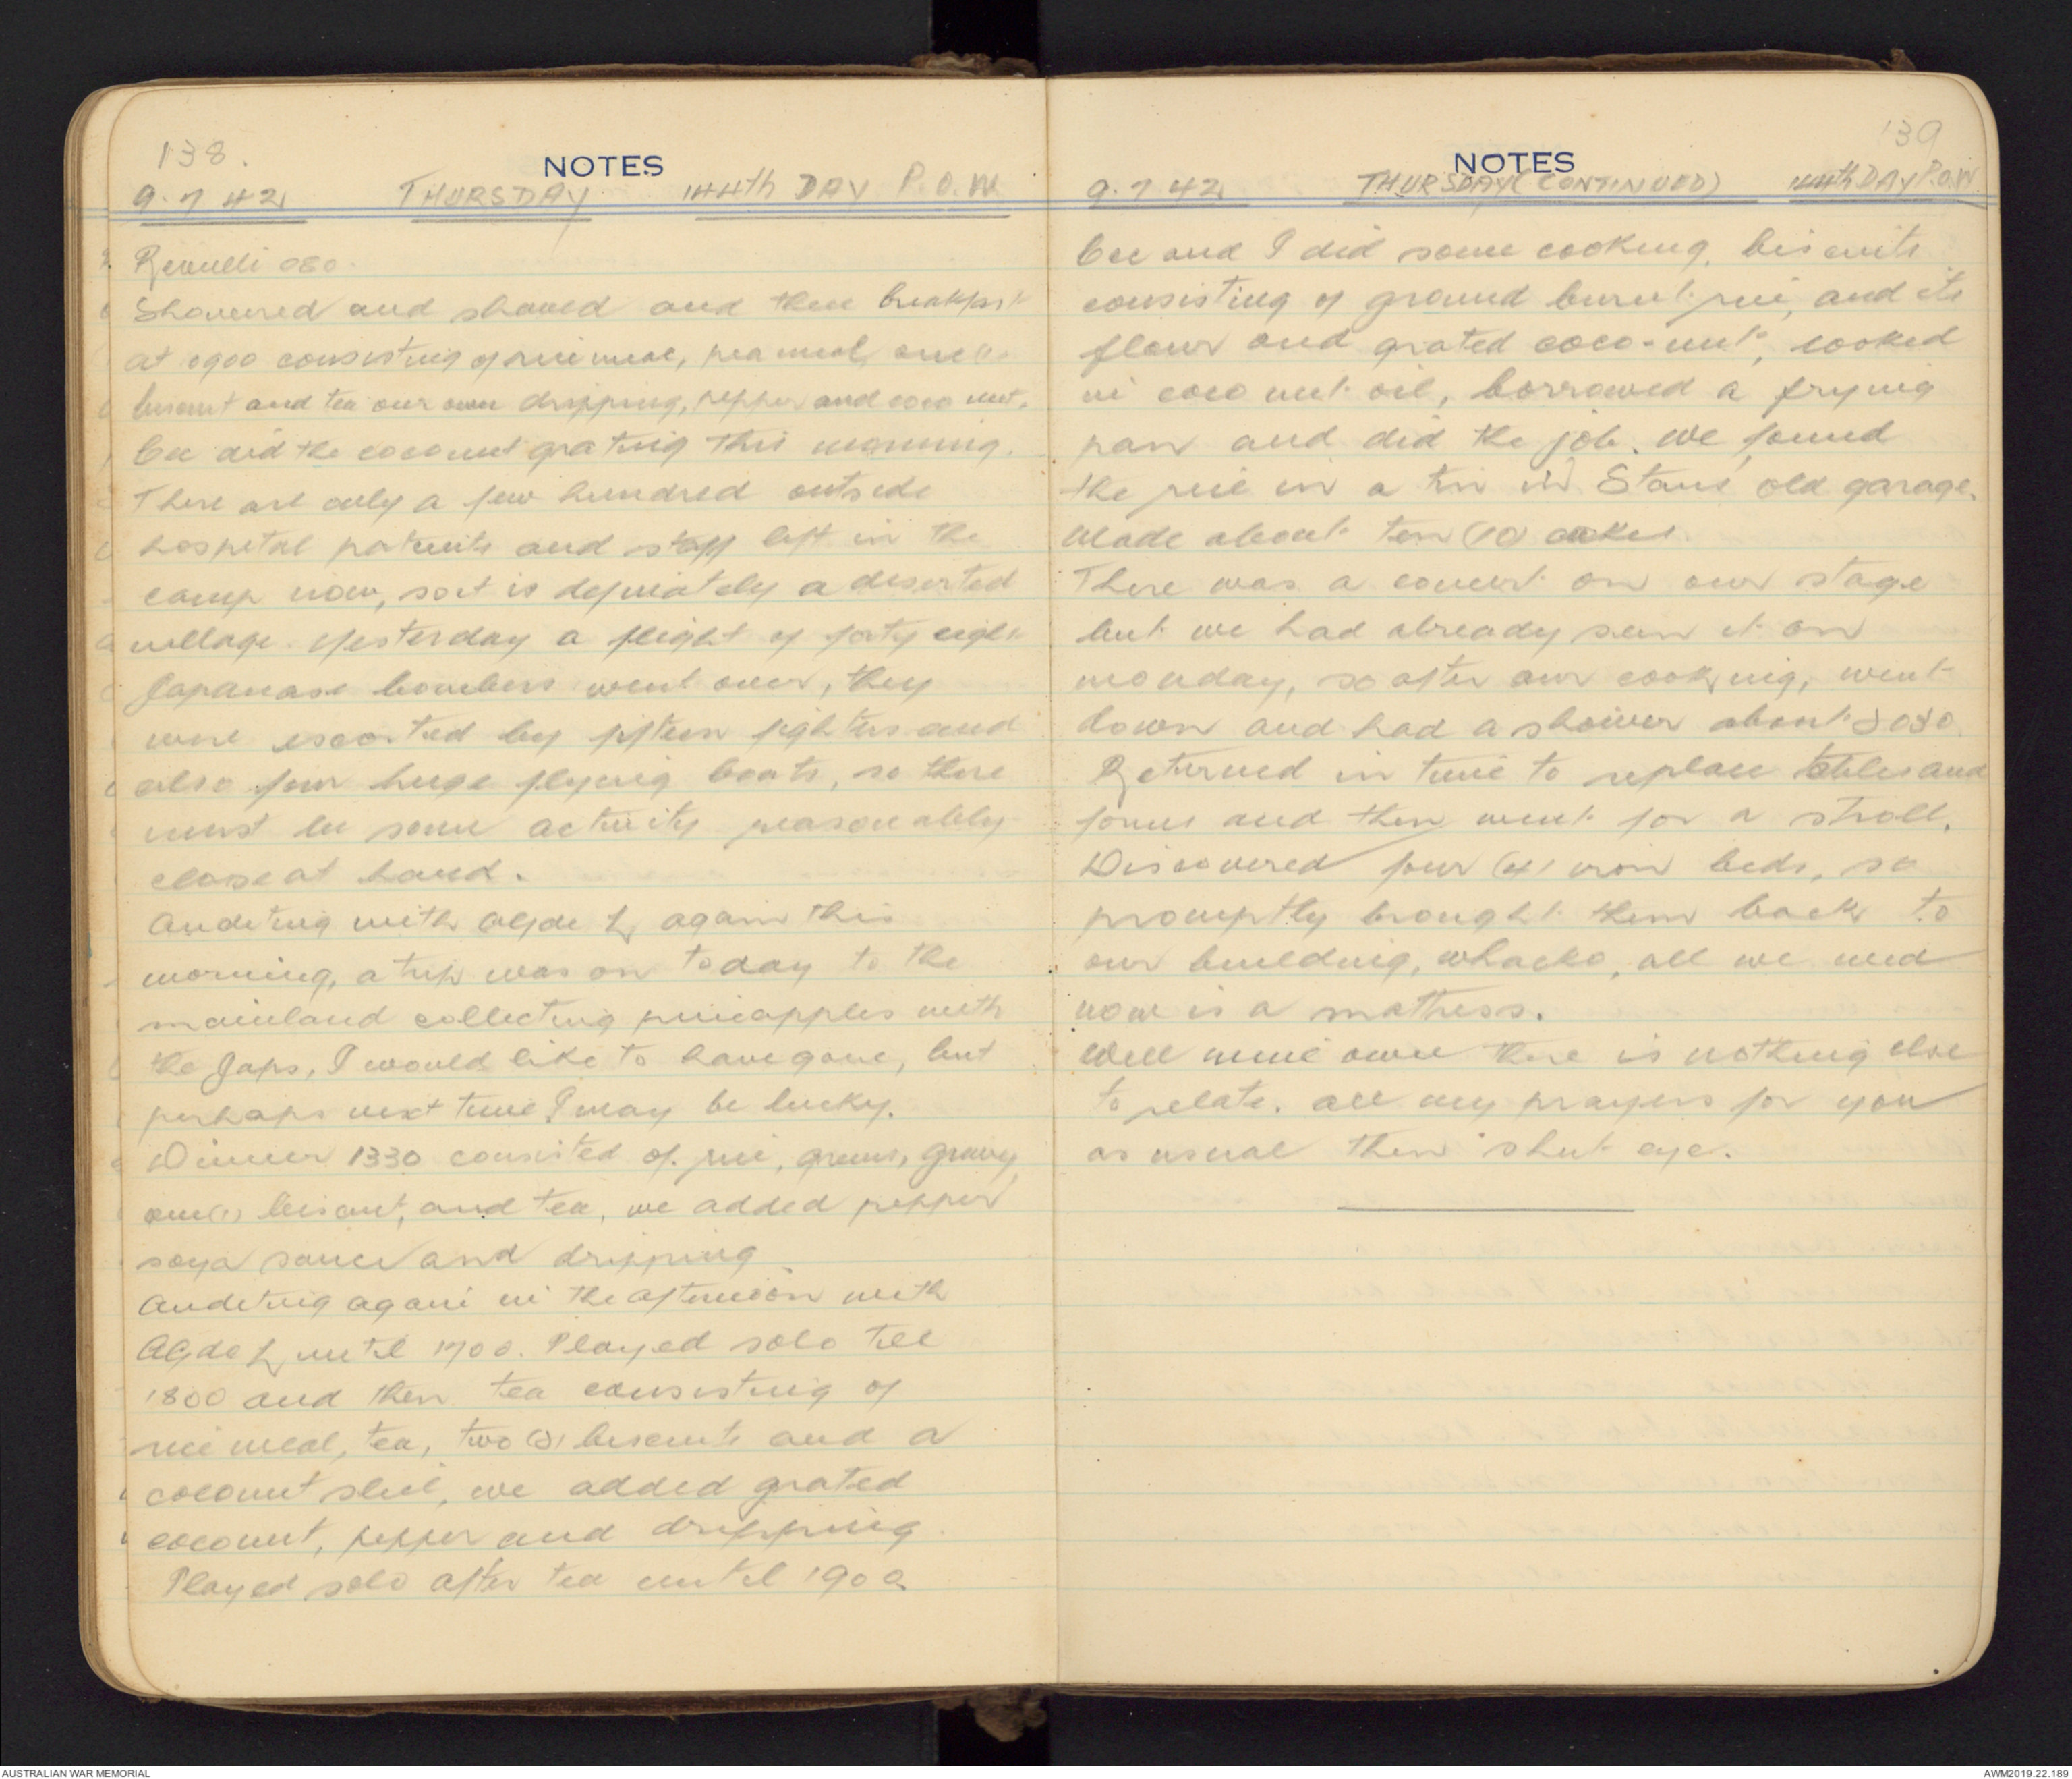 138.
NOTES
9.7.42 THURSDAY 144th DAY P.O.W.
Reveille 080
Showered and shaved and then breakfast
at 0900 consisting of rice meal, pea meal, one (1)
biscuit and tea our own dripping, pepper and coco nut.
Cec did the coconut grating this morning.
There are only a few hundred outside
hospital patients and staff left in the
camp now, so it is definately a deserted
village. Yesterday a flight of forty eight
Japanase bombers went over, they
were escorted by fifteen fighters and
also four huge flying boats, so there
must be some activity reasonably
close at hand.
Auditing with Clyde L, again this
morning, a trip was on today to the
mainland collecting pineapples with
the Japs, I would like to have gone, but
perhaps next time I may be lucky.
Dinner 1330 consisted of rice, greens, gravy,
one (1) biscuit, and tea, we added pepper
soya sauce and dripping
Auditing again in the afternoon with
Clyde L, until 1700. Played solo till
1800 and then tea consisting of
rice meal, tea, two (2) biscuits and a
coconut slice, we added grated
coconut, pepper and dripping.
Played solo after tea until 1900
139
NOTES
9.7.42 THURSDAY (CONTINUED) 144th DAY P.O.W.
Cec and I did some cooking, biscuits
consisting of ground burnt rice, and its
flour and grated coco-nut, cooked
in coco nut oil, borrowed a frying
pan and did the job. We found
the rice in a tin in Stans' old garage.
Made about ten (10) cakes.
There was a concert on our stage
but we had already seen it on
monday, so after our cooking, went
down and had a shower about 2030.
Returned in time to replace tables and
forms and then went for a stroll.
Discovered four (4) iron beds, so
promptly brought them back to
our building, whacko, all we need
now is a mattress.
Well mine own there is nothing else
to relate, all my prayers for you
as usual then shut eye.
AUSTRALIAN WAR MEMORIAL
AWM2019.22.189